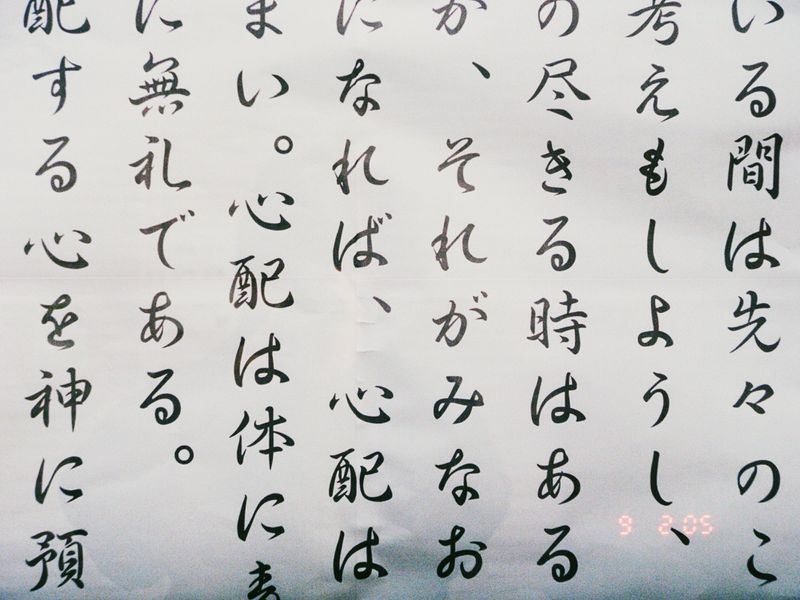 いる間は先々のこ
考えもしようし、
の尽きる時はある
が、それがみなお
になれば、心配は
まい。心配は体に
に無礼である。
配する心を神に預
9 2:05